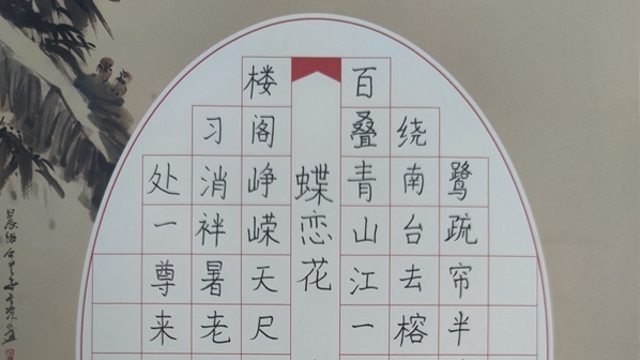 蝶恋花
百叠青山江一
绕南台去榕
鹭疏帘半
楼阁峥嵘天尺
习消袢暑老
处一尊来